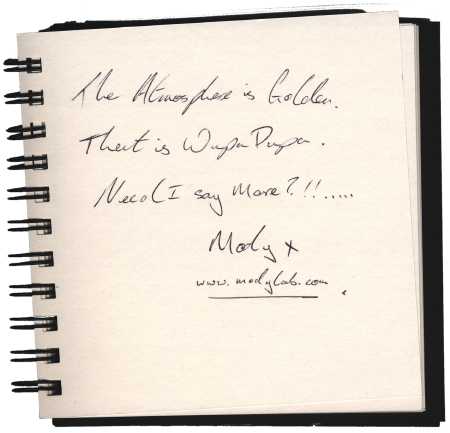 The Atmosphere is Golden.
That is WupaDupa.
Need I say More?!!.....
Mody x
www.modylab.com